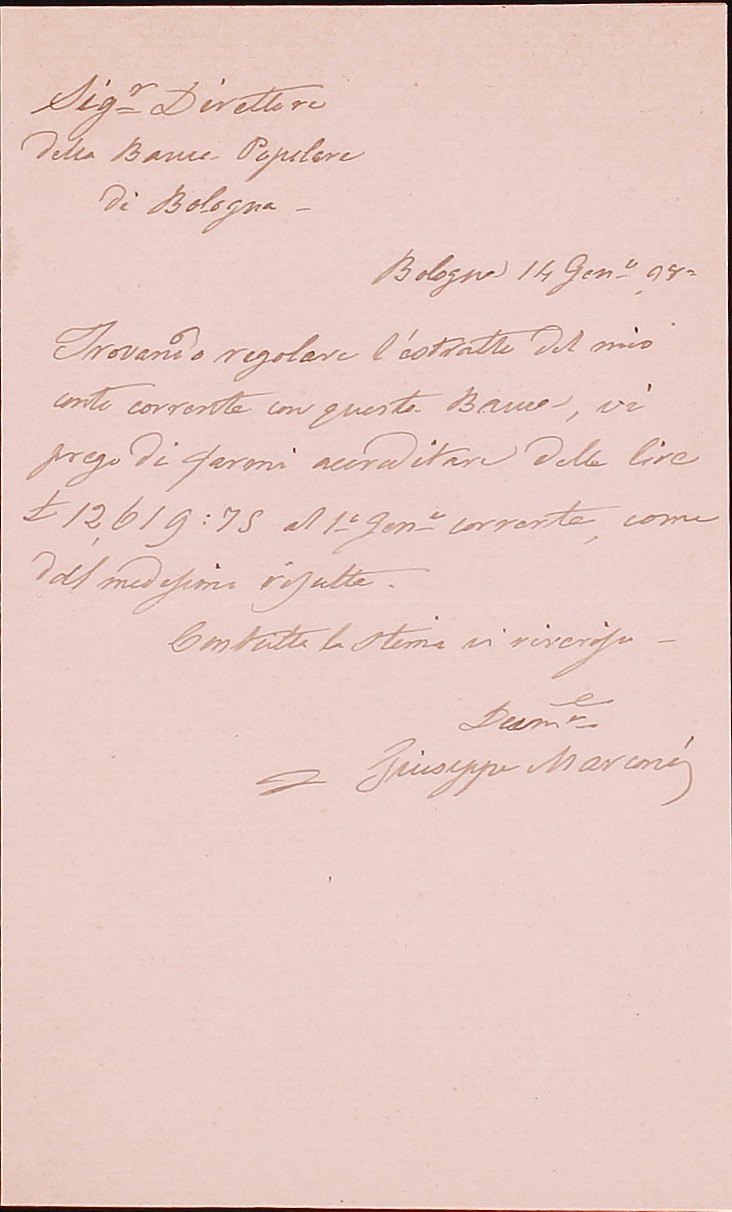 Sigr Direttore
della Banca Popolare
di Bologna –
Bologna 14 Geno 98=
Trovando regolare l'estratto del mio
conto corrente con questa Banca, vi
prego di farmi accreditare delle lire
£ 12,619:75 al 1o Geno corrente, come
dal medesimo risulta.
Con tutta la stima vi riverisco –
Devme
Giuseppe Marconi